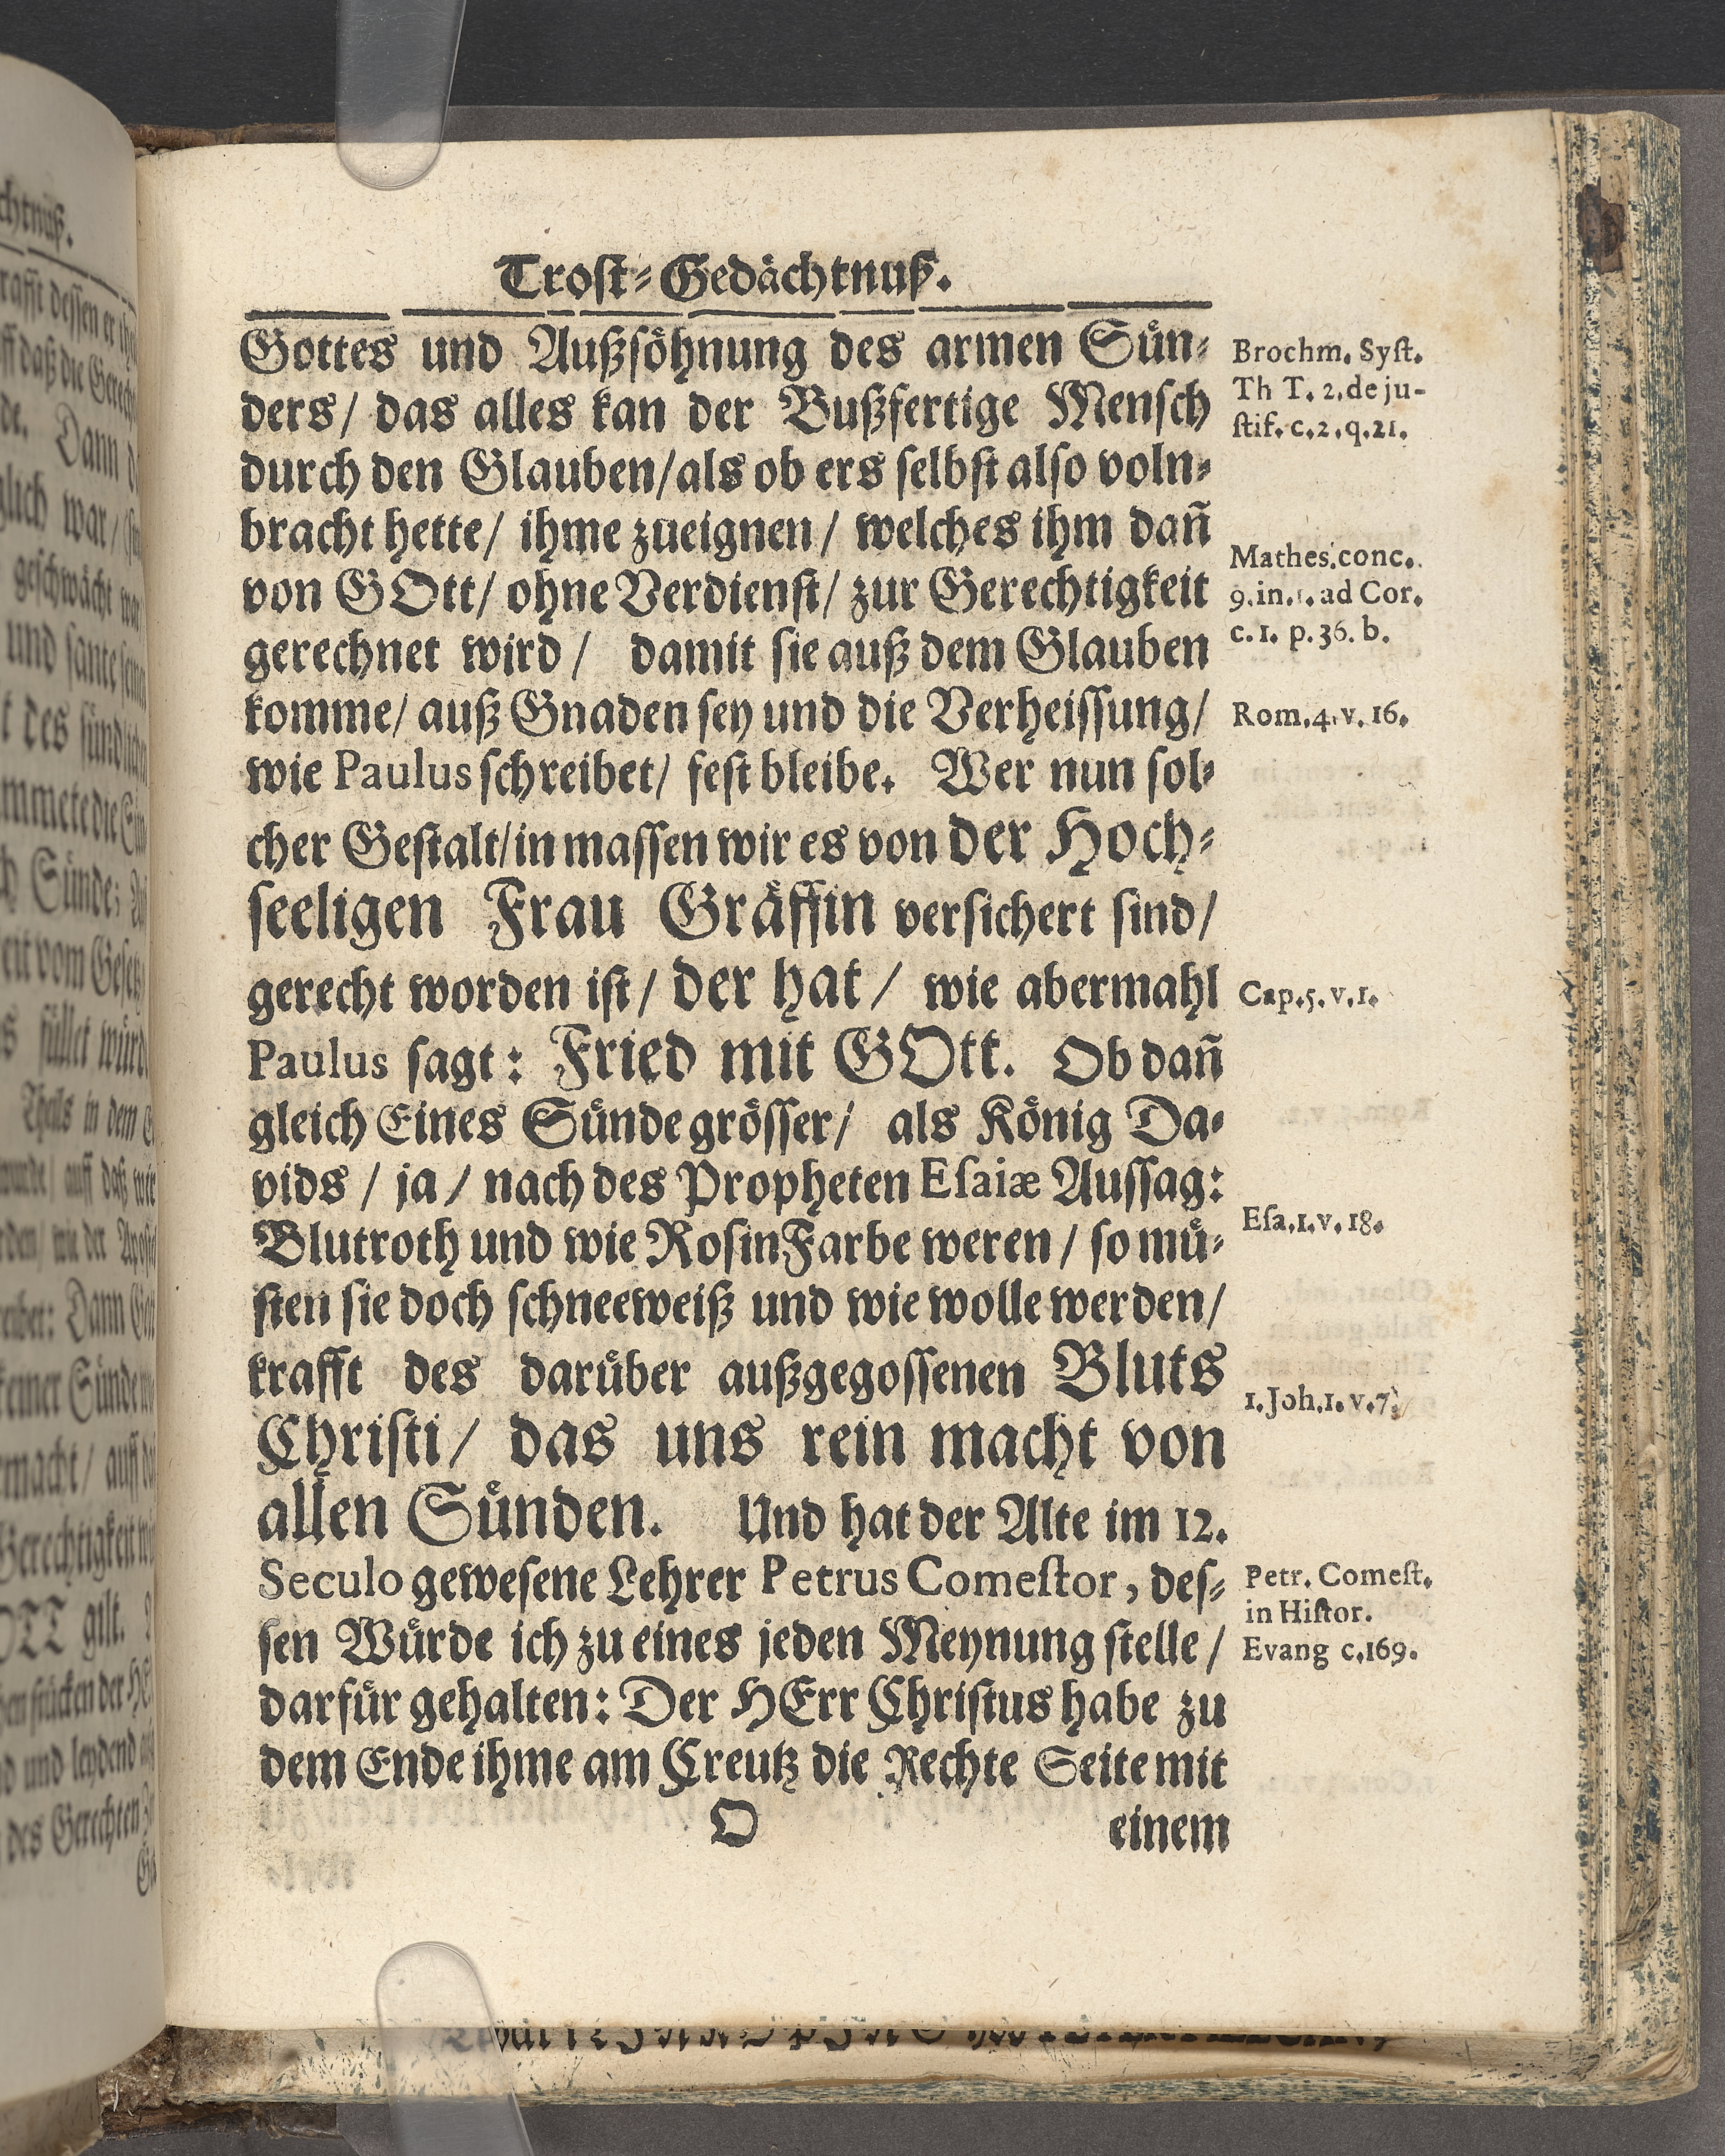 Trost-Gedächtnuß.
Gottes und Außsöhnung des armen Sün-
ders/ das alles kan der Bußfertige Mensch
durch den Glauben/als ob ers selbst also voln-
bracht hette/ ihme zueignen/ welches ihm dañ
von GOtt/ ohne Verdienst/ zur Gerechtigkeit
gerechnet wird/ damit sie auß dem Glauben
komme/ auß Gnaden sey und die Verheissung/
wie Paulus schreibet/ fest bleibe. Wer nun sol-
cher Gestalt/in massen wir es von der Hoch-
seeligen Frau Gräffin versichert sind/
gerecht worden ist/ der hat/ wie abermahl
Paulus sagt: Fried mit GOtt. Ob dañ
gleich Eines Sünde grösser/ als König Da-
vids/ ja/ nach des Propheten Esaiæ Aussag:
Blutroth und wie RosinFarbe weren/ so mü-
sten sie doch schneeweiß und wie wolle werden/
krafft des darüber außgegossenen Bluts
Christi/ das uns rein macht von
allen Sünden. Und hat der Alte im 12.
Seculo gewesene Lehrer Petrus Comestor, des-
sen Würde ich zu eines jeden Meynung stelle/
darfür gehalten: Der HErr Christus habe zu
dem Ende ihme am Creutz die Rechte Seite mit
O einem
Brochm. Syst.
Th T. 2. de ju-
stif. c. 2. q. 21.
Mathes. conc.
9. in. 1. ad Cor.
c. 1. p. 36. b.
Rom. 4. v. 16.
Cap. 5. v. 1.
Esa. 1. v. 18.
1. Joh. 1. v. 7.
Petr. Comest.
in Histor.
Evang c. 169.